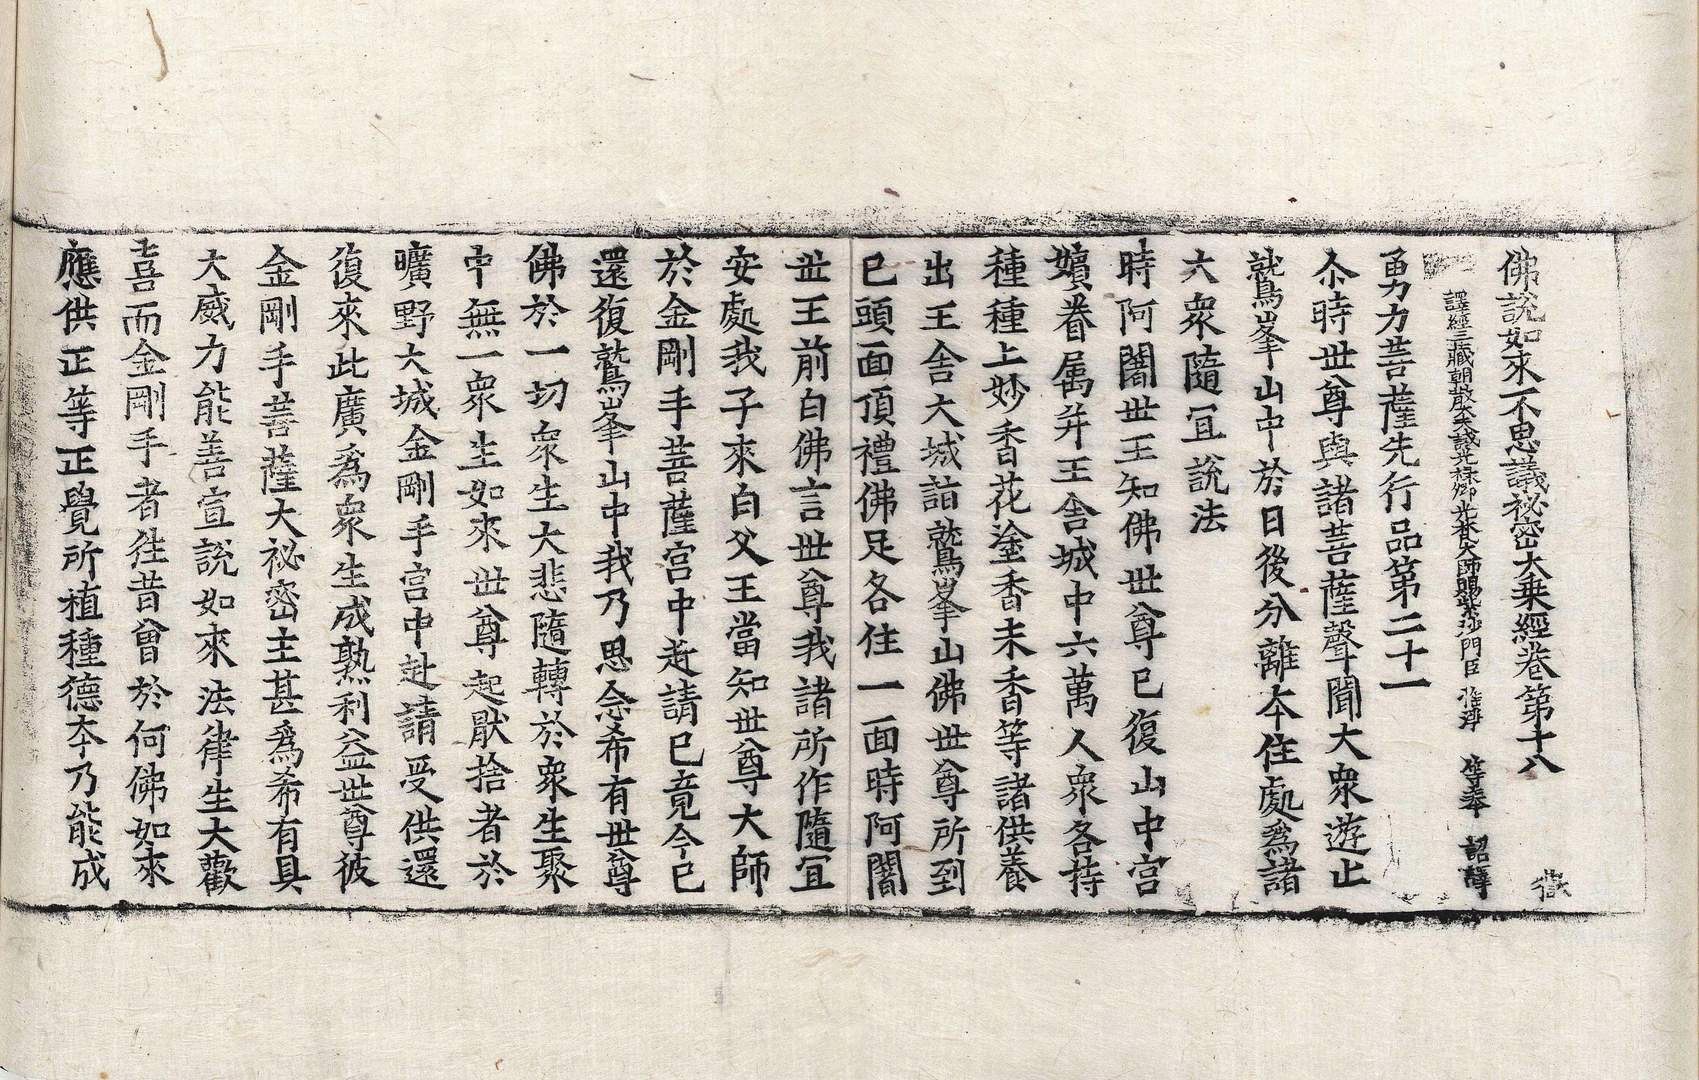 佛說如來不思議祕密大乘經卷第十八 㣲
譯經三藏朝散大夫試光祿卿光梵大師賜紫沙門臣 惟淨 等奉 詔譯
勇力菩薩先行品第二十一
尒時世尊與諸菩薩聲聞大衆遊止
鷲峯山中於日後分離夲住處爲諸
大衆隨冝說法
時阿闍世王知佛世尊已復山中宫
嬪眷属并王舍城中六萬人衆各持
種種上妙香花塗香末香等諸供養
出王舍大城詣鷲峯山佛世尊所到
已頭面頂禮佛足各住一面時阿闍
世王前白佛言世尊我諸所作隨冝
安處我子來白父王當知世尊大師
於金剛手菩薩宫中赴請已竟今已
還復鷲峯山中我乃思念希有世尊
佛於一切衆生大悲隨轉於衆生聚
中無一衆生如來世尊起猒捨者於
曠野大城金剛手宫中赴請受供還
復來此廣爲衆生成熟利益世尊彼
金剛手菩薩大祕密主甚爲希有具
大威力能善宣說如來法律生大歡
喜而金剛手者徃昔曾於何佛如來
應供正等正覺所植種德夲乃能成